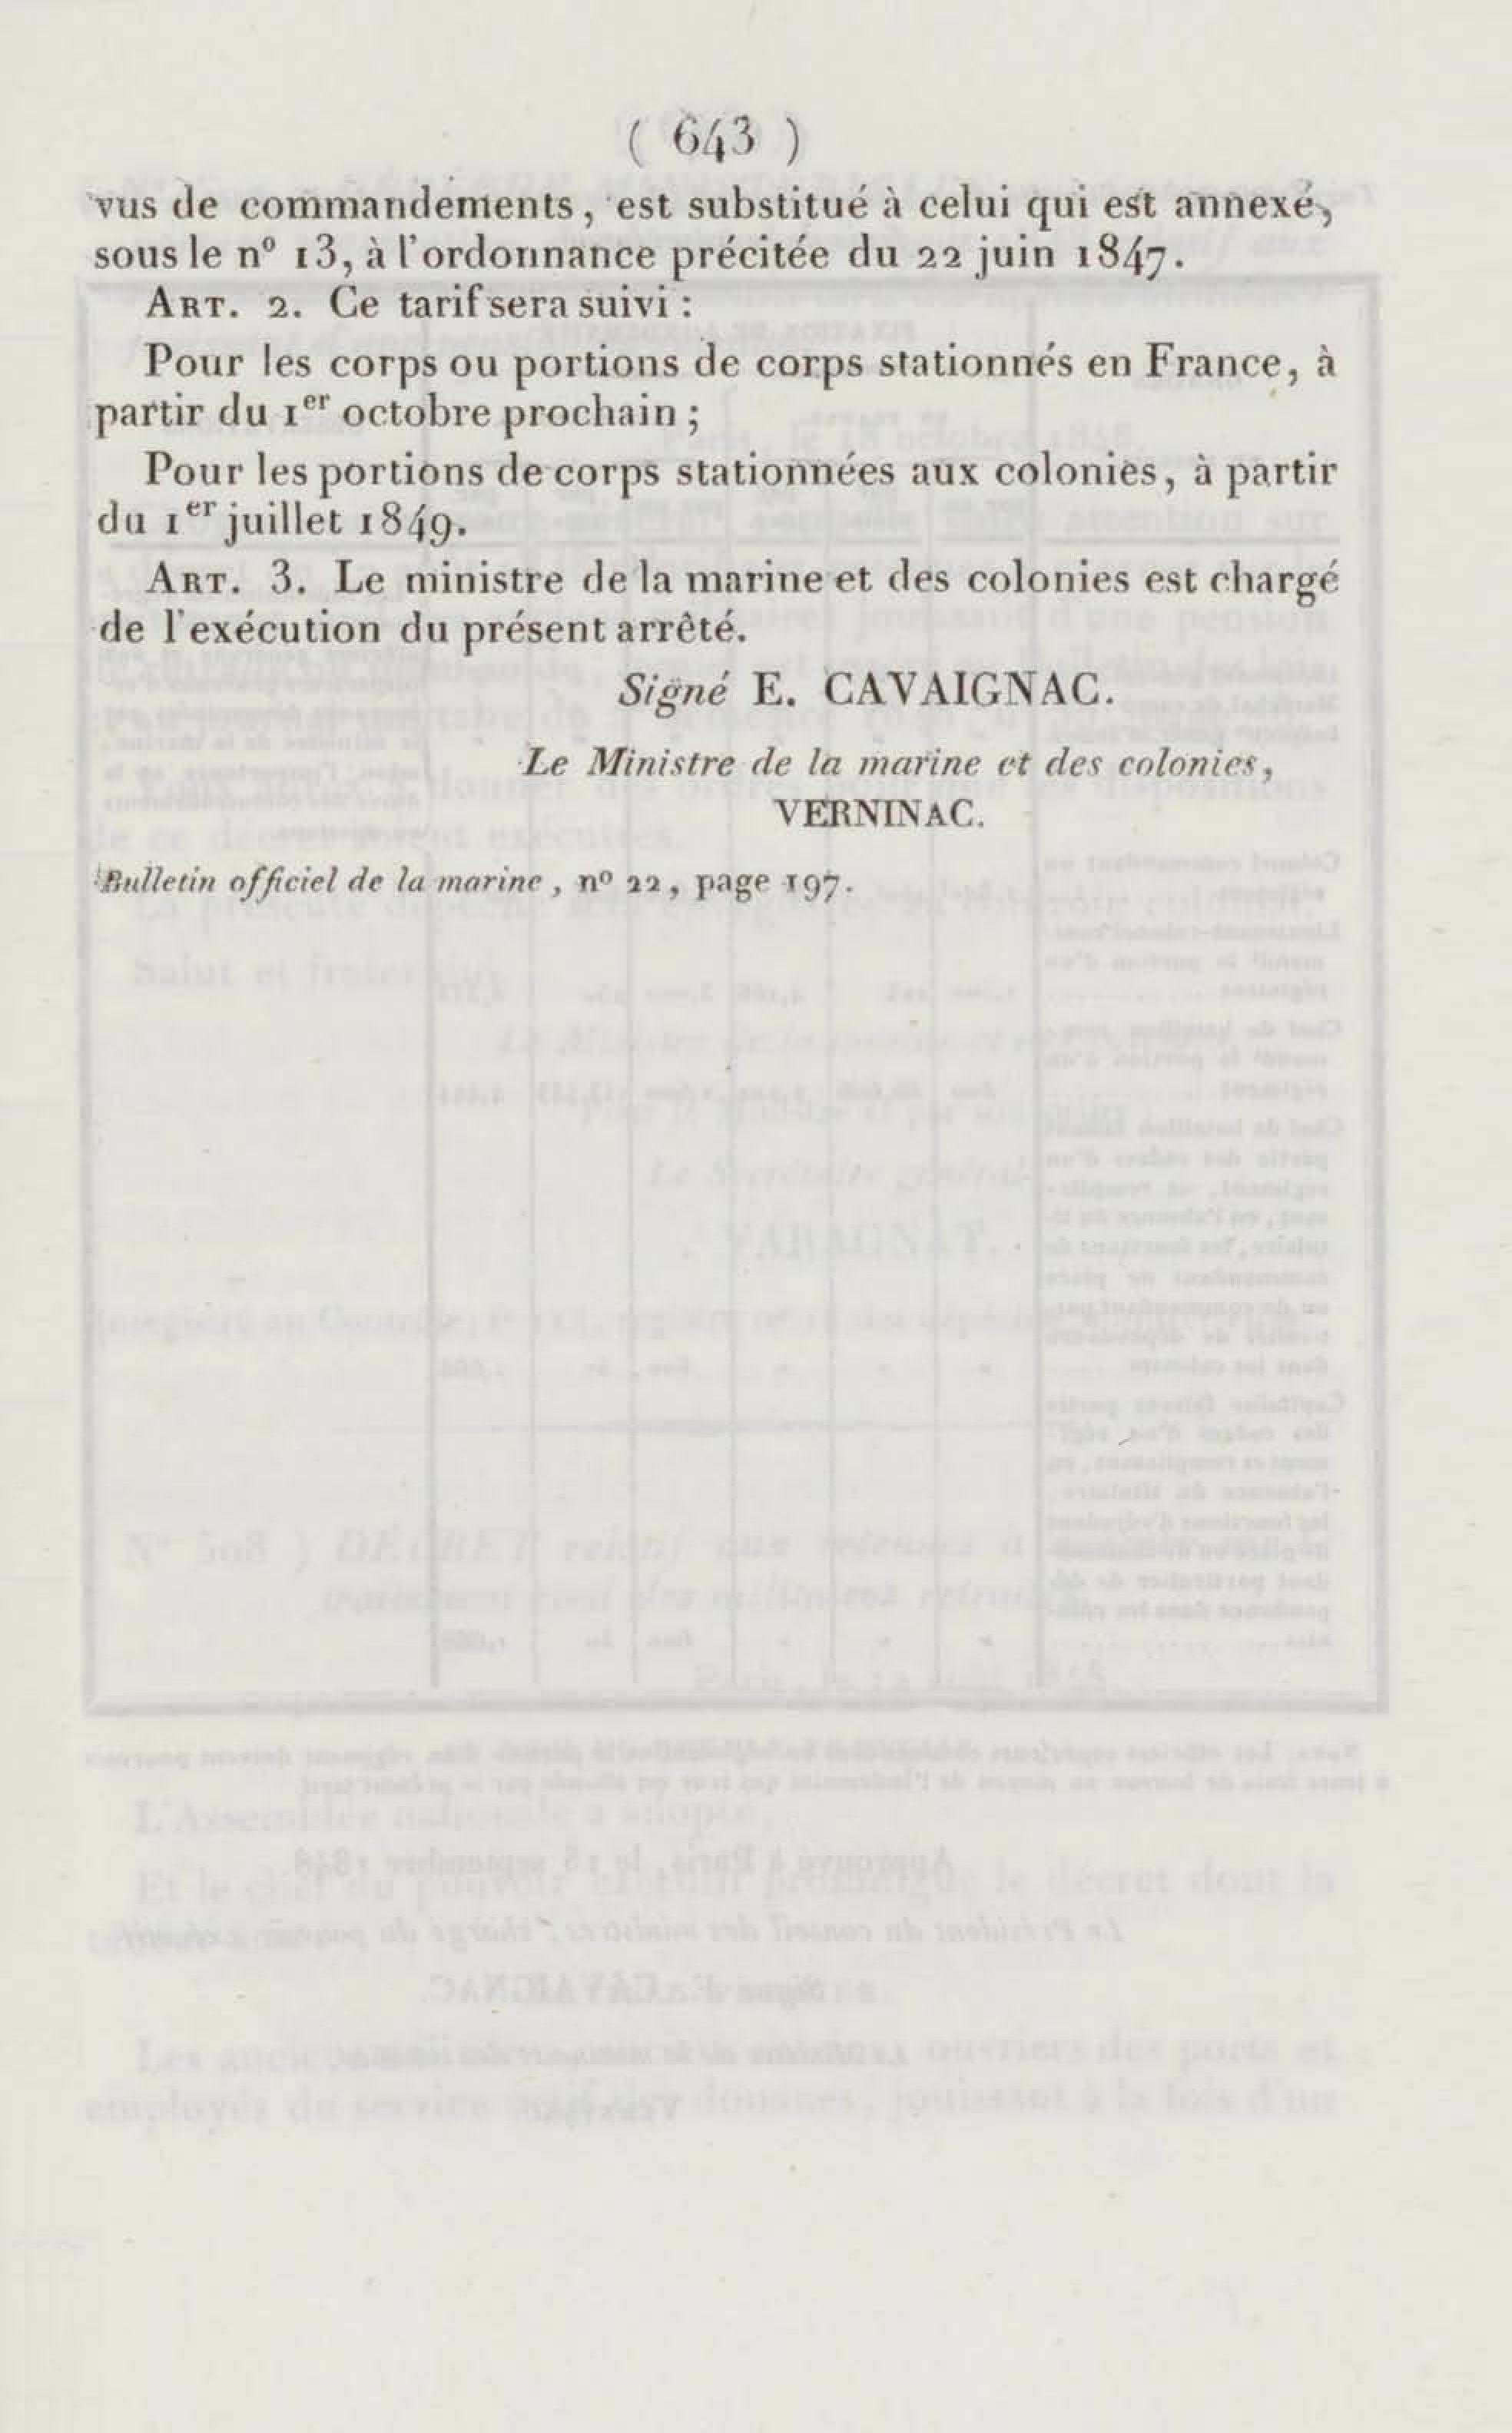 ( 643 )
vus de commandements, est substitué à celui qui est annexé,
sous le nº 13, à l'ordonnance précitée du 22 juin 1847.
ART. 2. Ce tarif sera suivi :
Pour les corps ou portions de corps stationnés en France, à
partir du 1er octobre prochain ;
Pour les portions de corps stationnées aux colonies, à partir
du 1er juillet 1849.
ART. 3. Le ministre de la marine et des colonies est chargé
de l'exécution du présent arrêté.
Signé E. CAVAIGNAC.
Le Ministre de la marine et des colonies,
VERNINAC.
Bulletin officiel de la marine, nº 22, page 197.